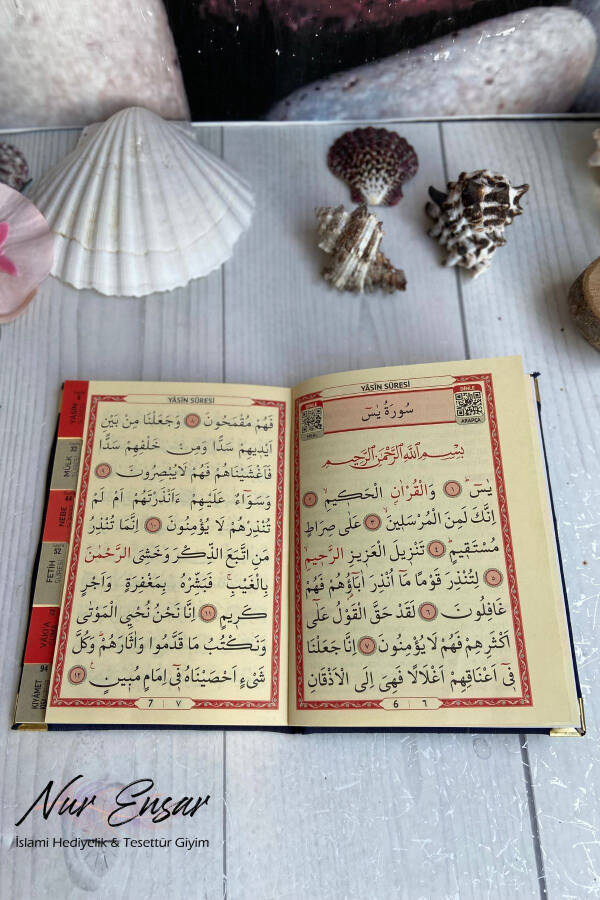 YÂSÎN SÛRESİ
DİNLE
سُورَةُ يٰسٓ
ARAPÇA
بِسْمِ اللّٰهِ الرَّحْمٰنِ الرَّحِيمِ
يٰسٓ ۚ ﴿١﴾ وَالْقُرْاٰنِ الْحَكِيمِ ۙ ﴿٢﴾
اِنَّكَ لَمِنَ الْمُرْسَلِينَ ۙ ﴿٣﴾ عَلٰى صِرَاطٍ
مُسْتَقِيمٍ ۜ ﴿٤﴾ تَنْزِيلَ الْعَزِيزِ الرَّحِيمِ ۙ
﴿٥﴾ لِتُنْذِرَ قَوْمًا مَٓا اُنْذِرَ اٰبَٓاؤُ۬هُمْ فَهُمْ
غَافِلُونَ ﴿٦﴾ لَقَدْ حَقَّ الْقَوْلُ عَلٰٓى
اَكْثَرِهِمْ فَهُمْ لَا يُؤْمِنُونَ ﴿٧﴾ اِنَّا جَعَلْنَا
فِٓي اَعْنَاقِهِمْ اَغْلَالًا فَهِيَ اِلَى الْاَذْقَانِ
6 ٦
YÂSÎN SÛRESİ
فَهُمْ مُقْمَحُونَ ﴿٨﴾ وَجَعَلْنَا مِنْ بَيْنِ
اَيْدِيهِمْ سَدًّا وَمِنْ خَلْفِهِمْ سَدًّا
فَاَغْشَيْنَاهُمْ فَهُمْ لَا يُبْصِرُونَ ﴿٩﴾
وَسَوَٓاءٌ عَلَيْهِمْ ءَاَنْذَرْتَهُمْ اَمْ لَمْ
تُنْذِرْهُمْ لَا يُؤْمِنُونَ ﴿١٠﴾ اِنَّمَا تُنْذِرُ
مَنِ اتَّبَعَ الذِّكْرَ وَخَشِيَ الرَّحْمٰنَ
بِالْغَيْبِ ۚ فَبَشِّرْهُ بِمَغْفِرَةٍ وَاَجْرٍ
كَرِيمٍ ﴿١١﴾ اِنَّا نَحْنُ نُحْيِ الْمَوْتٰى
وَنَكْتُبُ مَا قَدَّمُوا وَاٰثَارَهُمْ ۜ وَكُلَّ
شَيْءٍ اَحْصَيْنَاهُ فِٓي اِمَامٍ مُبِينٍ ۟ ﴿١٢﴾
7 ٧
YÂSÎN
MÜLK
NEBE
52
FETİH
SÛRESİ
VÂKIA
94
KIYÂMET
Nur Ensar
İslami Hediyelik & Tesettür Giyim